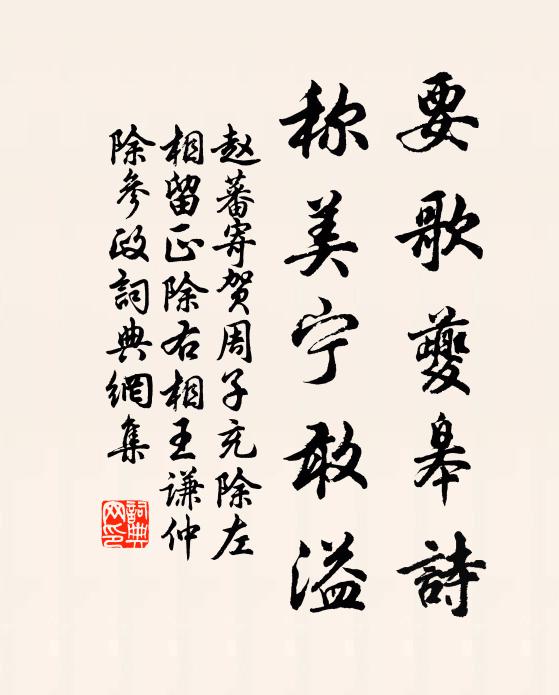 要歌夔皋詩
称美宁敢溢
赵蕃寄贺周子充除左
相留正除右相王谦仲
除參政詞典網集
詞典网印